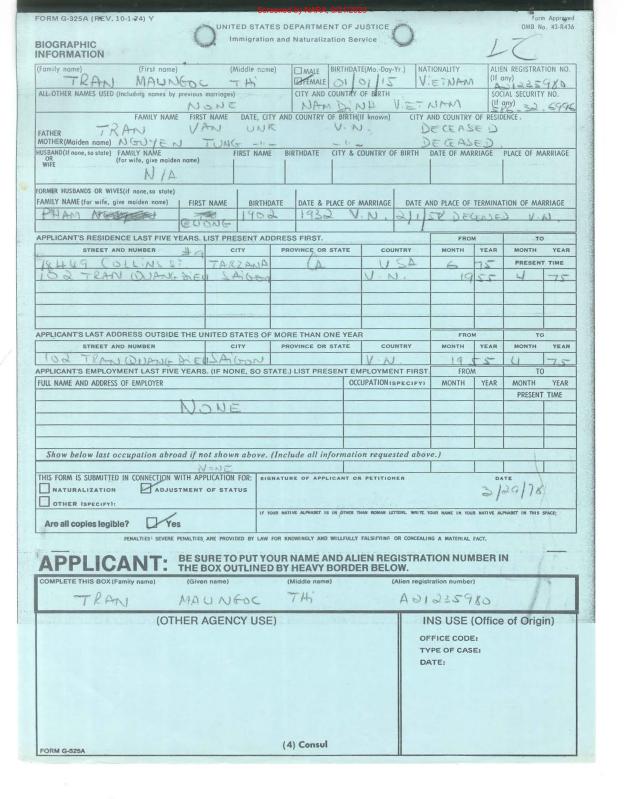 FORM G-325A (REV. 10-1-74) Y
UNITED STATES DEPARTMENT OF JUSTICE
Immigration and Naturalization Service
Form Approved
OMB No. 43-R436
BIOGRAPHIC INFORMATION
(Family name) (First name) (Middle name) MALE FEMALE BIRTHDATE(Mo.-Day-Yr.) NATIONALITY ALIEN REGISTRATION NO. (If any)
TRAN MAUNGOC THi 01/01/15 ViETNAM A21235980
ALL OTHER NAMES USED (Including names by previous marriages) CITY AND COUNTRY OF BIRTH SOCIAL SECURITY NO. (If any)
NONE NAM DiNH ViETNAM
FAMILY NAME FIRST NAME DATE, CITY AND COUNTRY OF BIRTH(If known) CITY AND COUNTRY OF RESIDENCE.
FATHER TRAN VAN UNK V.N. DECEASED
MOTHER(Maiden name) NGUYEN TUNG -"- -"- DECEASED
HUSBAND(If none, so state) OR WIFE FAMILY NAME (for wife, give maiden name) FIRST NAME BIRTHDATE CITY & COUNTRY OF BIRTH DATE OF MARRIAGE PLACE OF MARRIAGE
N/A
FORMER HUSBANDS OR WIVES(if none,so state)
FAMILY NAME (for wife, give maiden name) FIRST NAME BIRTHDATE DATE & PLACE OF MARRIAGE DATE AND PLACE OF TERMINATION OF MARRIAGE
PHAM CUONG 1902 1932 V.N. 2/1/58 DECEASED V.N.
APPLICANT'S RESIDENCE LAST FIVE YEARS. LIST PRESENT ADDRESS FIRST. FROM TO
STREET AND NUMBER CITY PROVINCE OR STATE COUNTRY MONTH YEAR MONTH YEAR
18449 COLLINS ST #9 TARZANA CA USA 6 75 PRESENT TIME
102 TRAN QUANG DIEU SAIGON V.N. 1955 4 75
APPLICANT'S LAST ADDRESS OUTSIDE THE UNITED STATES OF MORE THAN ONE YEAR FROM TO
STREET AND NUMBER CITY PROVINCE OR STATE COUNTRY MONTH YEAR MONTH YEAR
102 TRAN QUANG DIEU SAIGON V.N. 1955 4 75
APPLICANT'S EMPLOYMENT LAST FIVE YEARS. (IF NONE, SO STATE.) LIST PRESENT EMPLOYMENT FIRST. FROM TO
FULL NAME AND ADDRESS OF EMPLOYER OCCUPATION(SPECIFY) MONTH YEAR MONTH YEAR
PRESENT TIME
NONE
Show below last occupation abroad if not shown above. (Include all information requested above.)
NONE
THIS FORM IS SUBMITTED IN CONNECTION WITH APPLICATION FOR: SIGNATURE OF APPLICANT OR PETITIONER DATE
NATURALIZATION ADJUSTMENT OF STATUS
OTHER (SPECIFY):
3/29/78
Are all copies legible? Yes
IF YOUR NATIVE ALPHABET IS IN OTHER THAN ROMAN LETTERS, WRITE YOUR NAME IN YOUR NATIVE ALPHABET IN THIS SPACE:
PENALTIES: SEVERE PENALTIES ARE PROVIDED BY LAW FOR KNOWINGLY AND WILLFULLY FALSIFYING OR CONCEALING A MATERIAL FACT.
APPLICANT: BE SURE TO PUT YOUR NAME AND ALIEN REGISTRATION NUMBER IN THE BOX OUTLINED BY HEAVY BORDER BELOW.
COMPLETE THIS BOX (Family name) (Given name) (Middle name) (Alien registration number)
TRAN MAUNGOC THi A21235980
(OTHER AGENCY USE) INS USE (Office of Origin)
OFFICE CODE:
TYPE OF CASE:
DATE:
(4) Consul
FORM G-325A